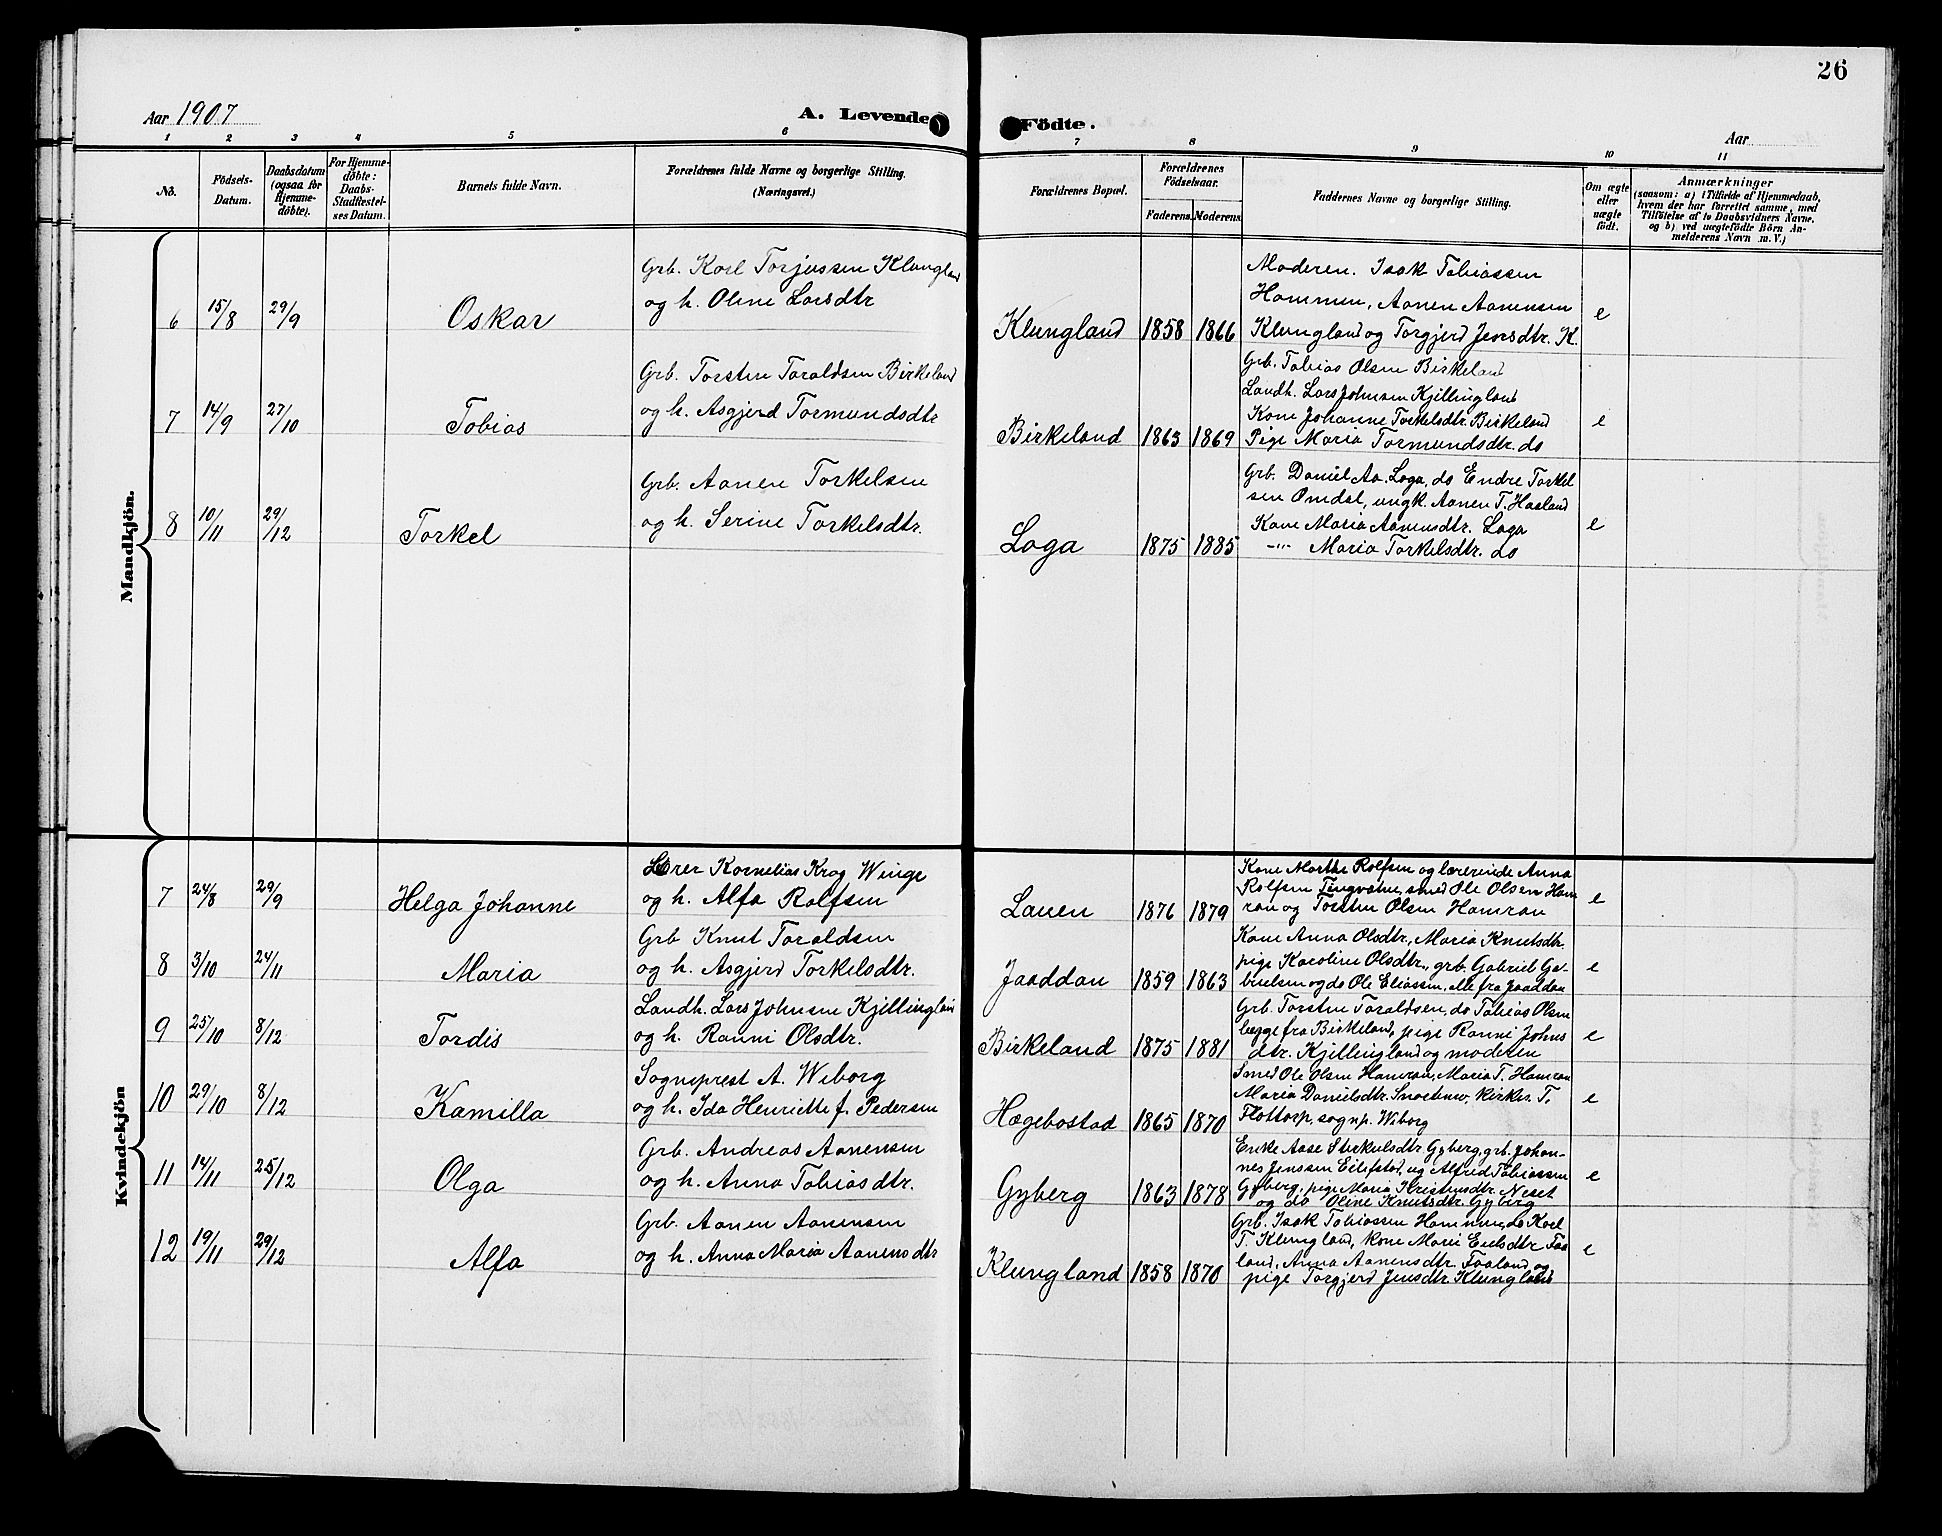 26
Aar 1907
A. Levende
Födte.
Aar
1 2 3 4 5 6 7 8 9 10 11
No.
Födsels-
Datum.
Daabsdatum
(ogsaa for
Hjemme-
döbte).
For Hjemme-
döbte:
Daabs-
Stadfæstel-
ses Datum.
Barnets fulde Navn.
Forældrenes fulde Navne og borgerlige Stilling.
(Næringsvei.)
Forældrenes Bopæl.
Forældrenes
Födselsaar.
Faderens.
Moderens.
Faddernes Navne og borgerlige Stilling.
Om ægte
eller
uægte
födt.
Anmærkninger
(saasom: a) i Tilfælde af Hjemmedaab,
hvem der har forrettet samme, med
Tilföielse af to Daabsvidners Navne,
og b) ved uægtefödte Börn An-
melderens Navn m. V.)
Mandkjön.
6 15/8 29/9 Oskar
Grb. Karl Torjussen Klungland
og h. Oline Larsdtr
Klungland 1858 1866
Moderen. Isak Tobiassen
Hammen, Aanen Aanensen
Klungland og Torgjerd Jensdtr. K.
e
7 14/9 27/10 Tobias
Grb. Torsten Taraldsen Birkeland
og h. Asgjerd Tormundsdtr
Birkeland 1863 1869
Grb. Tobias Olsen Birkeland
Landh. Lars Johnsen Kjillingland
Kone Johanne Torkelsdtr. Birkeland
Pige Maria Tormundsdtr. do
e
8 10/11 29/12 Torkel
Grb. Aanen Torkelsen
og h. Serine Torkelsdtr.
Loga 1875 1885
Grb. Daniel Aa. Loga, do Endre Torkel
sen Omdal, ungk. Aanen T. Haaland
Kone Maria Aanensdtr. Loga
-"- Maria Torkelsdtr. do
e
Kvindekjön
7 24/8 29/9 Helga Johanne
Lærer Kornelius Krog Winge
og h. Alfa Rolfsen
Lauen 1876 1879
Kone Marthe Rolfsen og lærerinde Anna
Rolfsen Tingvatne, smed Ole Olsen Ham
ran og Torsten Olsen Hamran
e
8 3/10 24/11 Maria
Grb Knut Taraldsen
og h. Asgjerd Torkelsdtr.
Jaaddan 1859 1863
Kone Anna Olsdtr., Maria Knutsdtr.
pige Karoline Olsdtr., grb. Gabriel Ga-
brielsen og do Ole Eliassen, alle fra Jaaddan
e
9 25/10 8/12 Tordis
Landh. Lars Johnsen Kjillingland
og h. Ranni Olsdtr.
Birkeland 1875 1881
Grb. Torsten Taraldsen, do Tobias Olsen
begge fra Birkeland, pige Ranni Johns
dtr. Kjillingland og moderen
e
10 29/10 8/12 Kamilla
Sogneprest A. Wiborg
og h. Ida Henriette f. Pedersen
Hægebostad 1865 1870
Smed Ole Olsen Hamran, Maria T. Hamran
Maria Danielsdtr. Snartemo, kirkes. T.
Flottorp, sognp. Wiborg
e
11 14/11 25/12 Olga
Grb. Andreas Aanensen
og h. Anna Tobiasdtr.
Gyberg 1863 1878
Enke Aase Sirkulsdtr Gyberg, grb. Johan-
nes Jenssen Eilifstad, ug Alfred Tobiassen
Gyberg, pige Maria Kristensdtr. Neset
og do Oline Knutsdtr. Gyberg
e
12 19/11 29/12 Alfa
Grb. Aanen Aanensen
og h. Anna Maria Aanensdtr
Klungland 1858 1870
Grb. Isak Tobiassen Hammen, do Karl
T. Klungland, kone Marie Eilsdtr Faa
land, Anna Aanensdtr. Faaland og
pige Torgjerd Jensdtr. Klungland
e